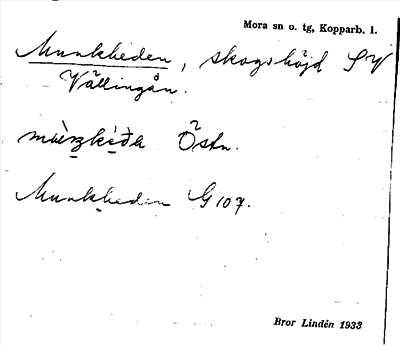 Mora sn o. tg, Kopparb. l.
Munkheden, skogshöjd SV
Vällingån.
Östn.
Munkheden G 107.
Bror Lindén 1933